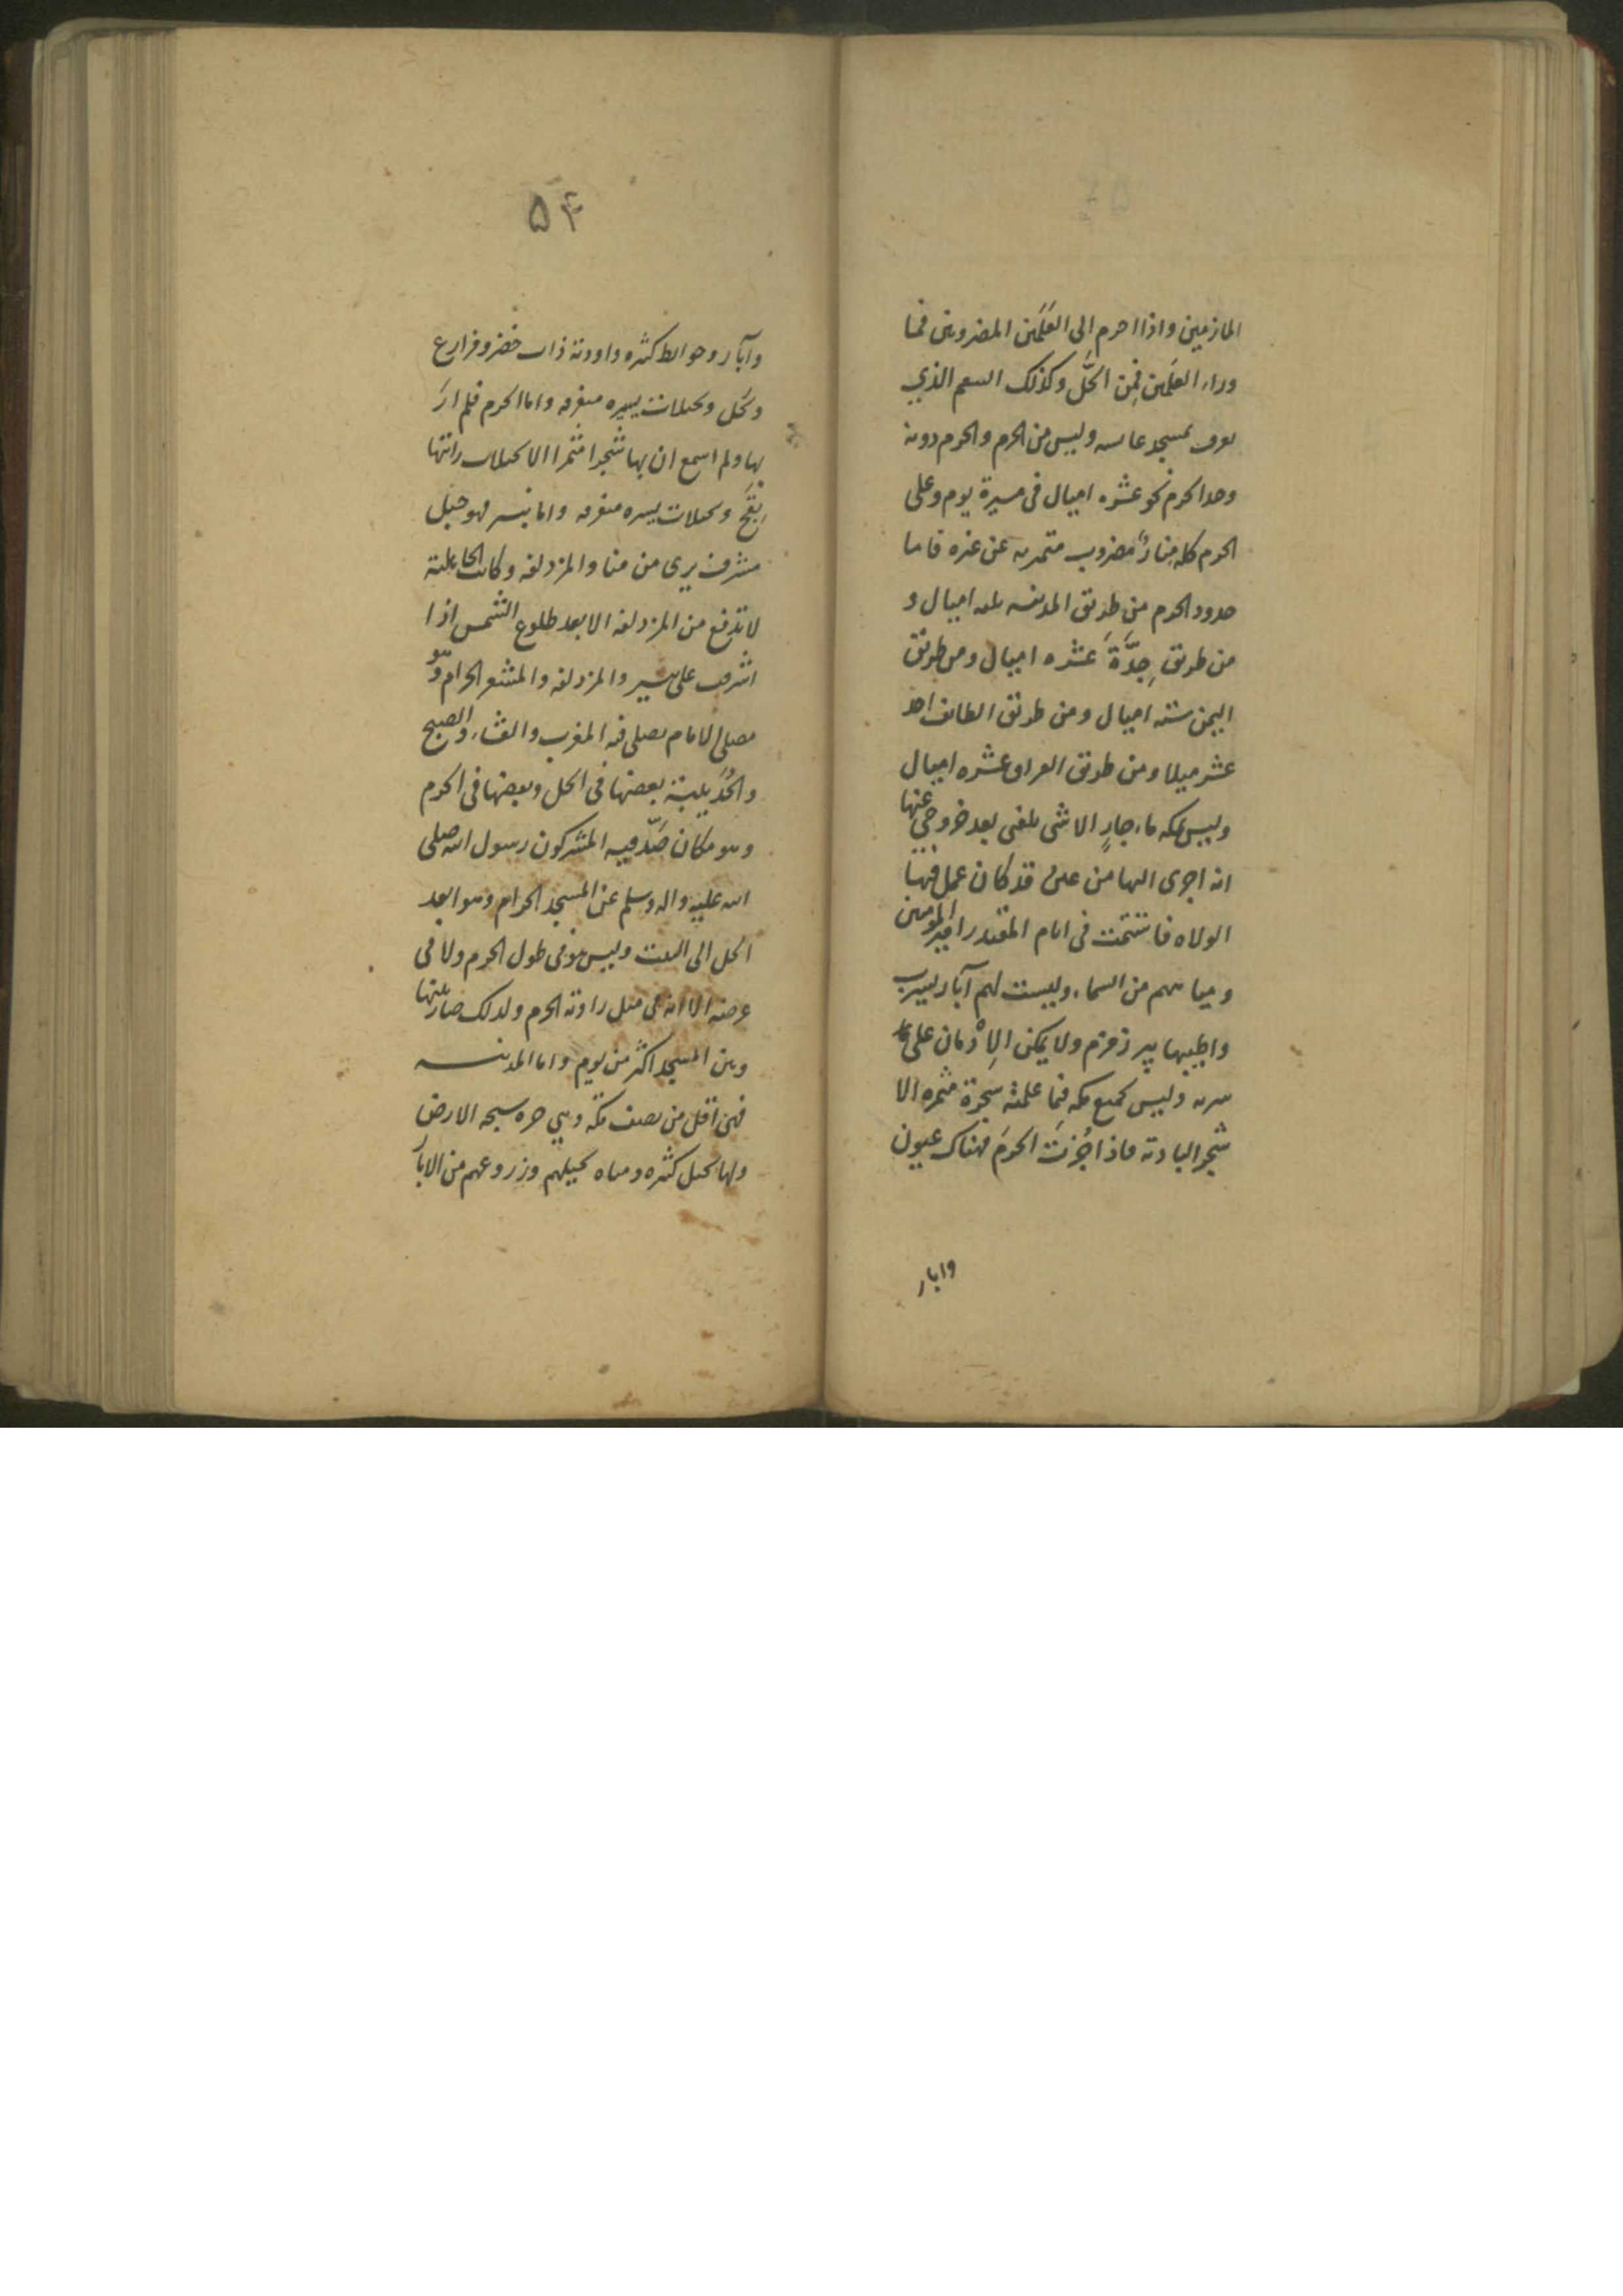 المازمين واذا احرم الى العَلَمَين المضروبين فما
وراء العلَمين فمن الحَلّ وكذلك السعم الذي
يعرف بمسجد عايسه وليس من الحرم والحرم دونه
وحد الحرم نحو عشره اميال فى مسيرة يوم وعلى
الحرم كله منارٌ مضروب متميز به عن غيره فاما
حدود الحرم من طريق المدينه ثلثه اميال و
من طريق جِدَّةَ عشره اميال ومن طريق
اليمن سته اميال ومن طريق الطايف احد
عشر ميلا ومن طريق العراق عشره اميال
وليس بمكه ماء جارٍ الا شى بلغنى بعد خروجي عنها
انه اجرى اليها من عين قد كان عمل فيها
الولاه فاستتمت فى ايام المقتدر امير المومنين
ومياههم من السماء وليست لهم آبار يشرب
واطيبها بير زمزم ولا يمكن الإدْمان على
شربه وليس بجميع مكه فيما علمته شجرة مثمره الا
شجر الباديه فاذا جُزتَ الحرمَ فهناك عيون
وابار
۵۴
وآبار وحوايط كثيره واوديه ذات خضر ومزارع
ونخل ونخيلات يسيره متفرقه واما الحرم فلم ارَ
بها ولم اسمع ان بها شجرا مثمرا الا نخيلات رايتها
بفَخّ ونخيلات يسيره متفرقه واما ثبير فهو جبل
مشرف يرى من منا والمزدلفه وكانت الجاهلية
لا تدفع من المزدلفه الا بعد طلوع الشمس اذا
اشرقت على ثبير والمزدلفه والمشعر الحرام وهو
مصلى الامام يصلى فيه المغرب والعشاء والصبح
والحُدَيبية بعضها فى الحل وبعضها فى الحرم
وهو مكان صَدَّ فيه المشركون رسول الله صلى
الله عليه واله وسلم عن المسجد الحرام وهو ابعد
الحل الى البيت وليس هو فى طول الحرم ولا فى
عرضه الا انه فى مثل زاويه الحرم ولذلك صار بينها
وبين المسجد اكثر من يوم واما المدينه
فهى اقل من نصف مكّه وهي حره سبخه الارض
ولها نخيل كثيره ومياه نخيلهم وزروعهم من الابار